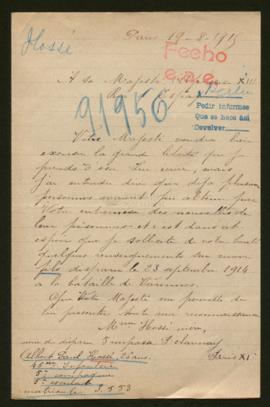 Hossé
Paris 19-8-1915
Fecho
A Sa Majesté
XIII
91950
Pedir informes
Que se hace así
Devolver
Votre Majesté voudra bien
excuser la grande liberté que je
prends
mais
j'ai entendu dire que déjà plusieurs
personnes avaient pu obtenir par
Votre des nouvelles de
leur prisonniers et c'est dans cet
espoir que je sollicite de votre bonté
quelques renseignements sur mon
fils disparu le 23 septembre 1914
à la bataille de Varennes.
Que Votre Majesté me permette de
lui présenter toute ma reconnaissance
Mme Hossé mère
rue de 5 impasse Delaunay
Paris XIe
Albert Paul Hossé, ans
46me Infanterie
5e compagnie
matricule